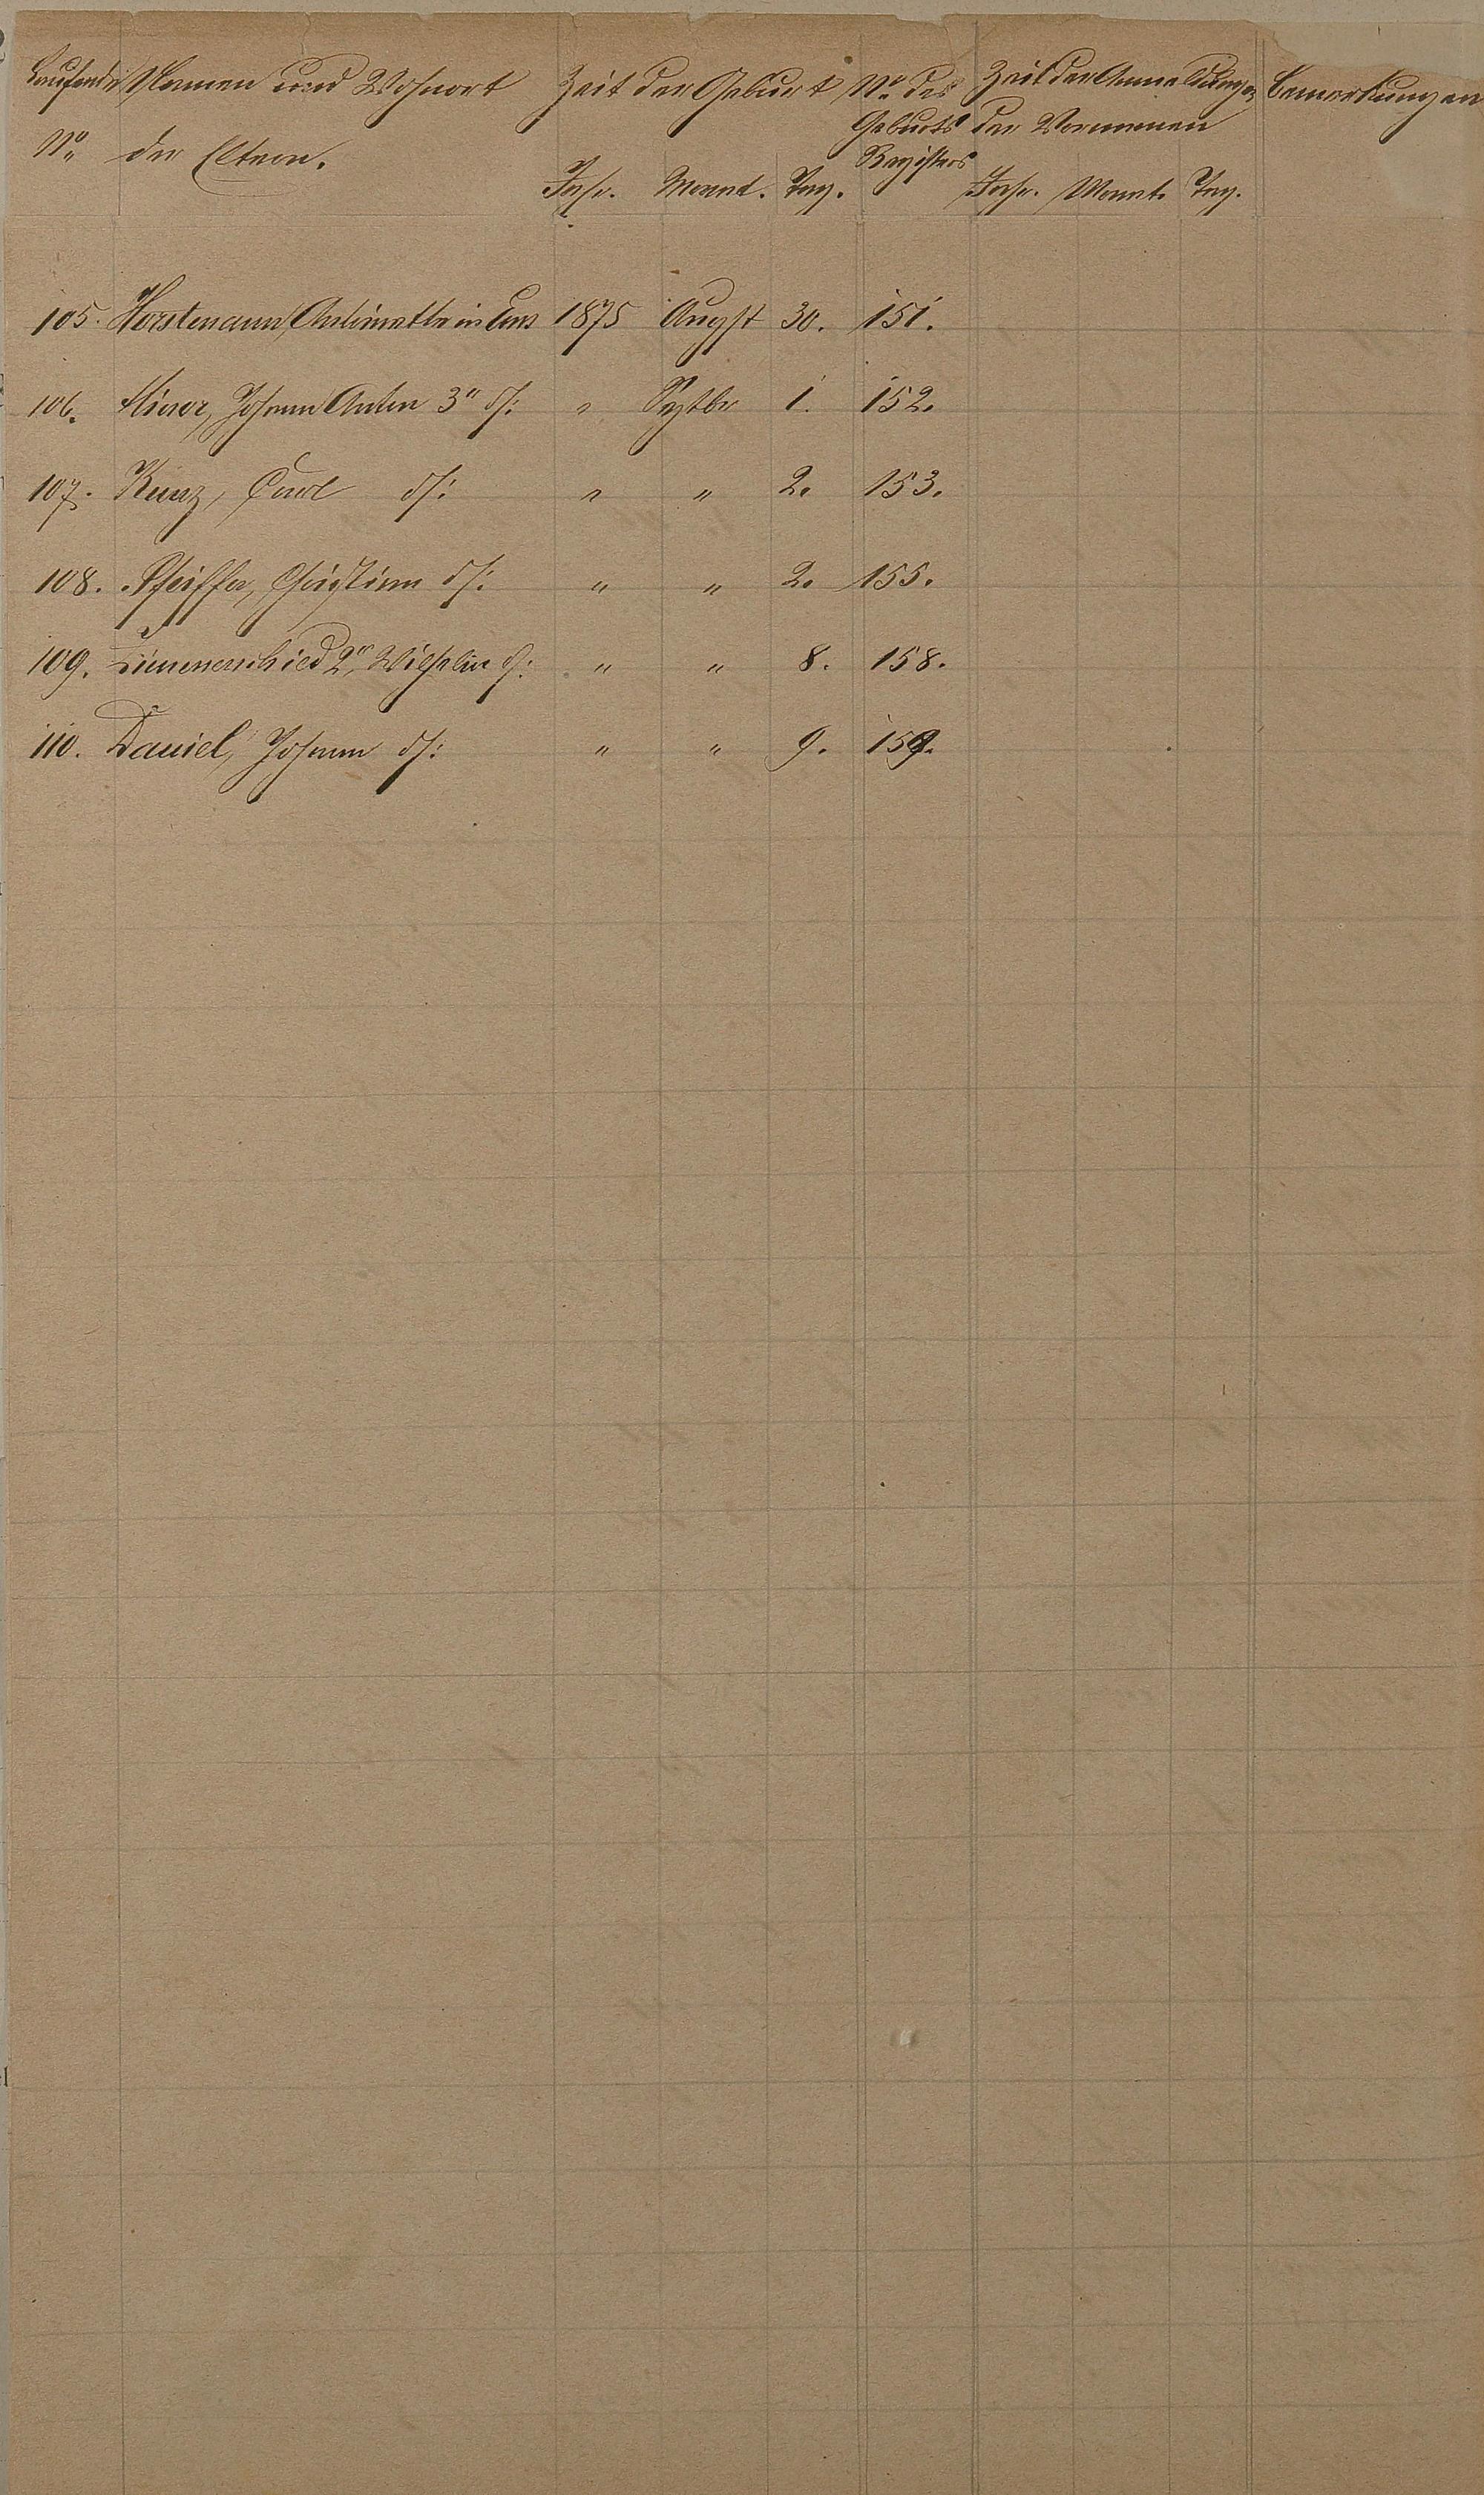 Laufende Namen und Wohnort Zeit der Geburt No des Zeit der Anmeldung Bemerkungen
Geburts der Vornamen
No der Eltern. Registers
Jahr. Monat. Tag. Jahr. Monat. Tag.
105. Horstmann, in Ems 1875 August 30. 151.
106. Johann Anton 3r d/: " Septbr 1. 152.
107. Kunz, Carl d/: " " 2. 153.
108. Pfeiffer, Christian d/: " " 2. 155.
109. Limmerschied 2r, Wilhelm d/: " " 8. 158.
110. Daniel, Johann d/: " " 9. 159.